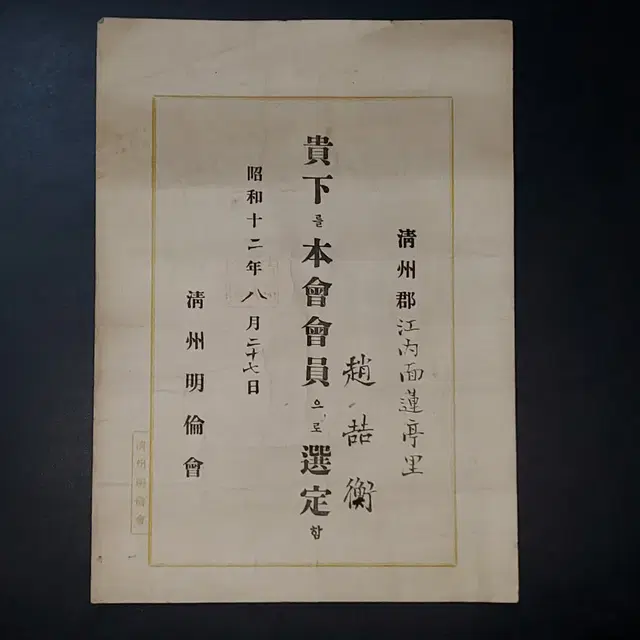 淸州郡江內面蓮亭里
趙喆衡
貴下를本會會員으로選定함
昭和十二年八月二十七日
淸州明倫會
淸州明倫會